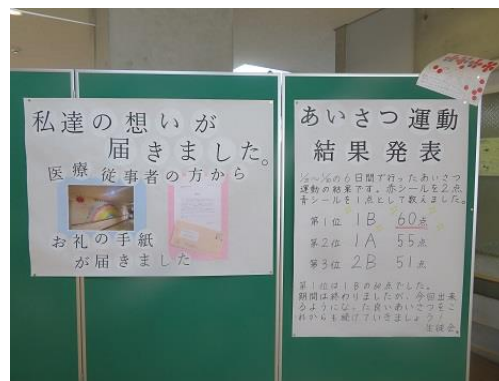 私達の想いが
届きました。
医療従事者の方から
お礼の手紙
が届きました
あいさつ運動
結果発表
の6日間で行ったあいさつ
運動の結果です。赤シールを2点
青シールを1点として数えました。
第1位 1B 60点
第2位 1A 55点
第3位 2B 51点
第1位は1Bの60点でした。
期間は終わりましたが、今回出来
るようになった良いあいさつをこ
れからも続けていきましょう!
生徒会。